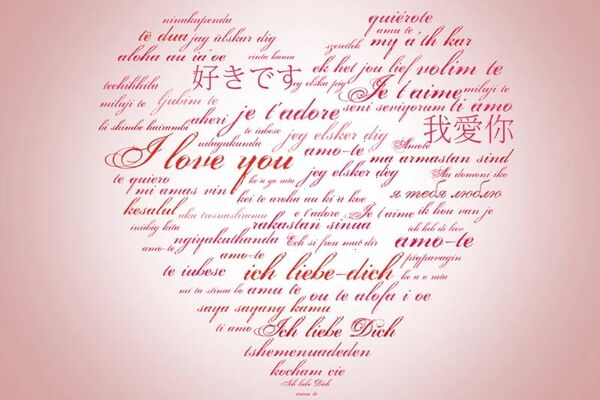 ninakupenda quiérote
të dua jag älskar dig amu te my a'th kar
aloha au iā'oe cinta kamu szeretlek ek het jou lief volim te
techihhila 好きです jeg elsku þig Je t'aime miluji te
miluji te ljubim te aheri je t'adore seni seviyorum ti amo
bi shimbe hairanda te iubesc jeg elsker dig 我愛你
ndagukunda amo-te Amote
I love you jeg elsker deg ma armastan sind
te quiero ke'a yo rata Au domoni iko
mi amas vin kei te aroha au ki ù koe я тебя люблю
kesalul aku tresnasliramu e t'adore Je t'aime ik hou van je
inaibig kita rakastan sinua ich heb di leev
amo-te ngiyakuthanda Ech si frou mat dir amo-te
amo-te pigpavagin
te iubesc ich liebe-dich ke a o rata
mi ta stima bo amu te ou te alofa i oe
saya sayang kamu
ti amo Ich liebe Dich
tshemenuadeden
kocham cie
Ich liebe Dich
amu te